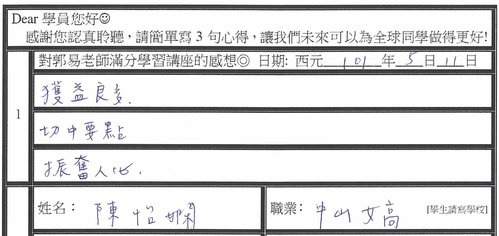 Dear 學員您好☺
感謝您認真聆聽，請簡單寫 3 句心得，讓我們未來可以為全球同學做得更好!
對郭易老師滿分學習講座的感想◎ 日期: 西元 101 年 5 日 11 日
1
獲益良多.
切中要點
振奮人心.
姓名: 陳怡嫻
職業: 中山女高 [學生請寫學校]